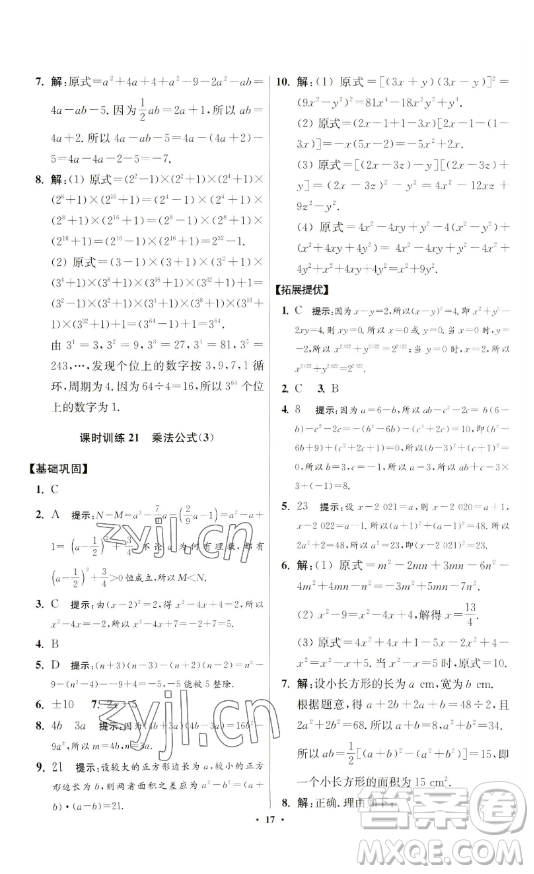 7. 解:原式=a²+4a+4+a²-9-2a²-ab=
4a-ab-5.因为1/2ab=2a+1,所以ab=
4a+2.所以4a-ab-5=4a-(4a+2)-
5=4a-4a-2-5=-7.
8. 解:(1) 原式=(2²-1)×(2²+1)×(2⁴+1)×
(2⁸+1)×(2¹⁶+1)=(2⁴-1)×(2⁴+1)×
(2⁸+1)×(2¹⁶+1)=(2⁸-1)×(2⁸+1)×
(2¹⁶+1)=(2¹⁶-1)×(2¹⁶+1)=2³²-1.
(2) 原式=(3-1)×(3+1)×(3²+1)×
(3⁴+1)×(3⁸+1)×(3¹⁶+1)×(3³²+1)=
(3²-1)×(3²+1)×(3⁴+1)×(3⁸+1)×
(3¹⁶+1)×(3³²+1)=3⁶⁴-1.
由3¹=3,3²=9,3³=27,3⁴=81,3⁵=
243,…,发现个位上的数字按3,9,7,1循
环,周期为4.因为64÷4=16,所以3⁶⁴个位
上的数字为1.
课时训练21 乘法公式(3)
【基础巩固】
1. C
2. A 提示:N-M=a²-7/9a-(2/9a-1)=a²-a+
1=(a-1/2)²+3/4.不论a为何有理数,都有
(a-1/2)²+3/4>0恒成立,所以M<N.
3. C 提示:由(x-2)²=2,得x²-4x+4=2.所以
x²-4x=-2.所以x²-4x+7=-2+7=5.
4. B
5. D 提示:(n+3)(n-3)-(n+2)(n-2)=n²-
9-(n²-4)=n²-9-n²+4=-5,一定能被5整除.
6. ±10 7. 2x+5
8. 4b 3a 提示:因为(4b+3a)(4b-3a)=16b²-
9a²,所以m=4b,n=3a.
9. 21 提示:设较大的正方形边长为a,较小的正方
形边长为b,则两者面积之差为a²-b²=(a+
b)·(a-b)=21.
10. 解:(1) 原式=[(3x+y)(3x-y)]²=
(9x²-y²)²=81x⁴-18x²y²+y⁴.
(2) 原式=(2x-1+1-3x)[2x-1-(1-
3x)]=-x(5x-2)=-5x²+2x.
(3) 原式=[(2x-3z)-y][(2x-3z)+
y]=(2x-3z)²-y²=4x²-12xz+
9z²-y².
(4) 原式=4x²-4xy+y²-4(x²-y²)+
(x²+4xy+4y²)=4x²-4xy+y²-4x²+
4y²+x²+4xy+4y²=x²+9y².
【拓展提优】
1. C 提示:因为x-y=2,所以(x-y)²=4,即x²+y²-
2xy=4,则xy=0.所以x=0或y=0.当x=0时,
x²⁰²²+y²⁰²²=y²⁰²²=2²⁰²²;当y=0时,x²⁰²²+
y²⁰²²=x²⁰²²=2²⁰²².
2. C 3. B
4. 8 提示:因为a=6-b,所以ab-c²-9=b(6-
b)-c²-9=-b²+6b-9-c²=-(b-3)²-
c²=0,所以b=3,c=0,a=3.所以a+b-c=3+
3+(-0)=8.
5. 23 提示:设x-2 021=a,则x-2 020=a+1,
x-2 022=a-1,所以(a+1)²+(a-1)²=48.所以
2a²+2=48.所以a²=23,即(x-2 021)²=23.
6. 解:(1) 原式=m²-2mn+3mn-6n²=
m²+mn-6n².
(2) x²-9=x²-4x+4,解得x=13/4.
(3) 原式=4x²+4x+1-5x-2x²+4=
2x²-x+5.
7. 解:设小长方形的长为a cm,宽为b cm.
根据题意,得4a+4b+2a+2b=48÷2,且
2a²+2b²=68.所以a+b=8,a²+b²=34.
所以ab=1/2[(a+b)²-(a²+b²)]=15,即
一个小长方形的面积为15 cm².
8. 解:正确.理由如下:
·17·
zyjl.cn
zyjl.cn
答案圈
MXQE.COM